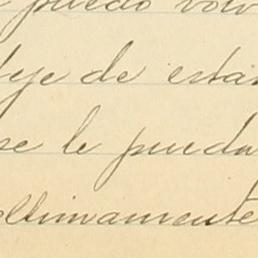 puedo volv
deje de estar
se le pueda
ultimamente